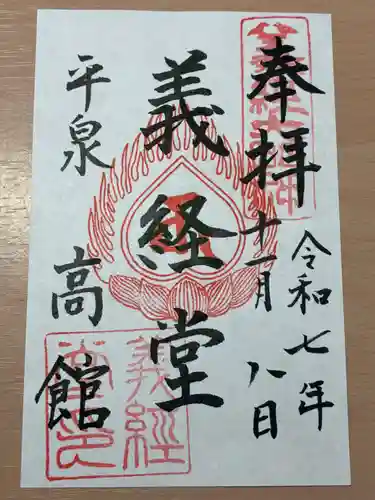 奉拝
令和七年
十一月八日
義経堂
平泉
高館
義経
堂印